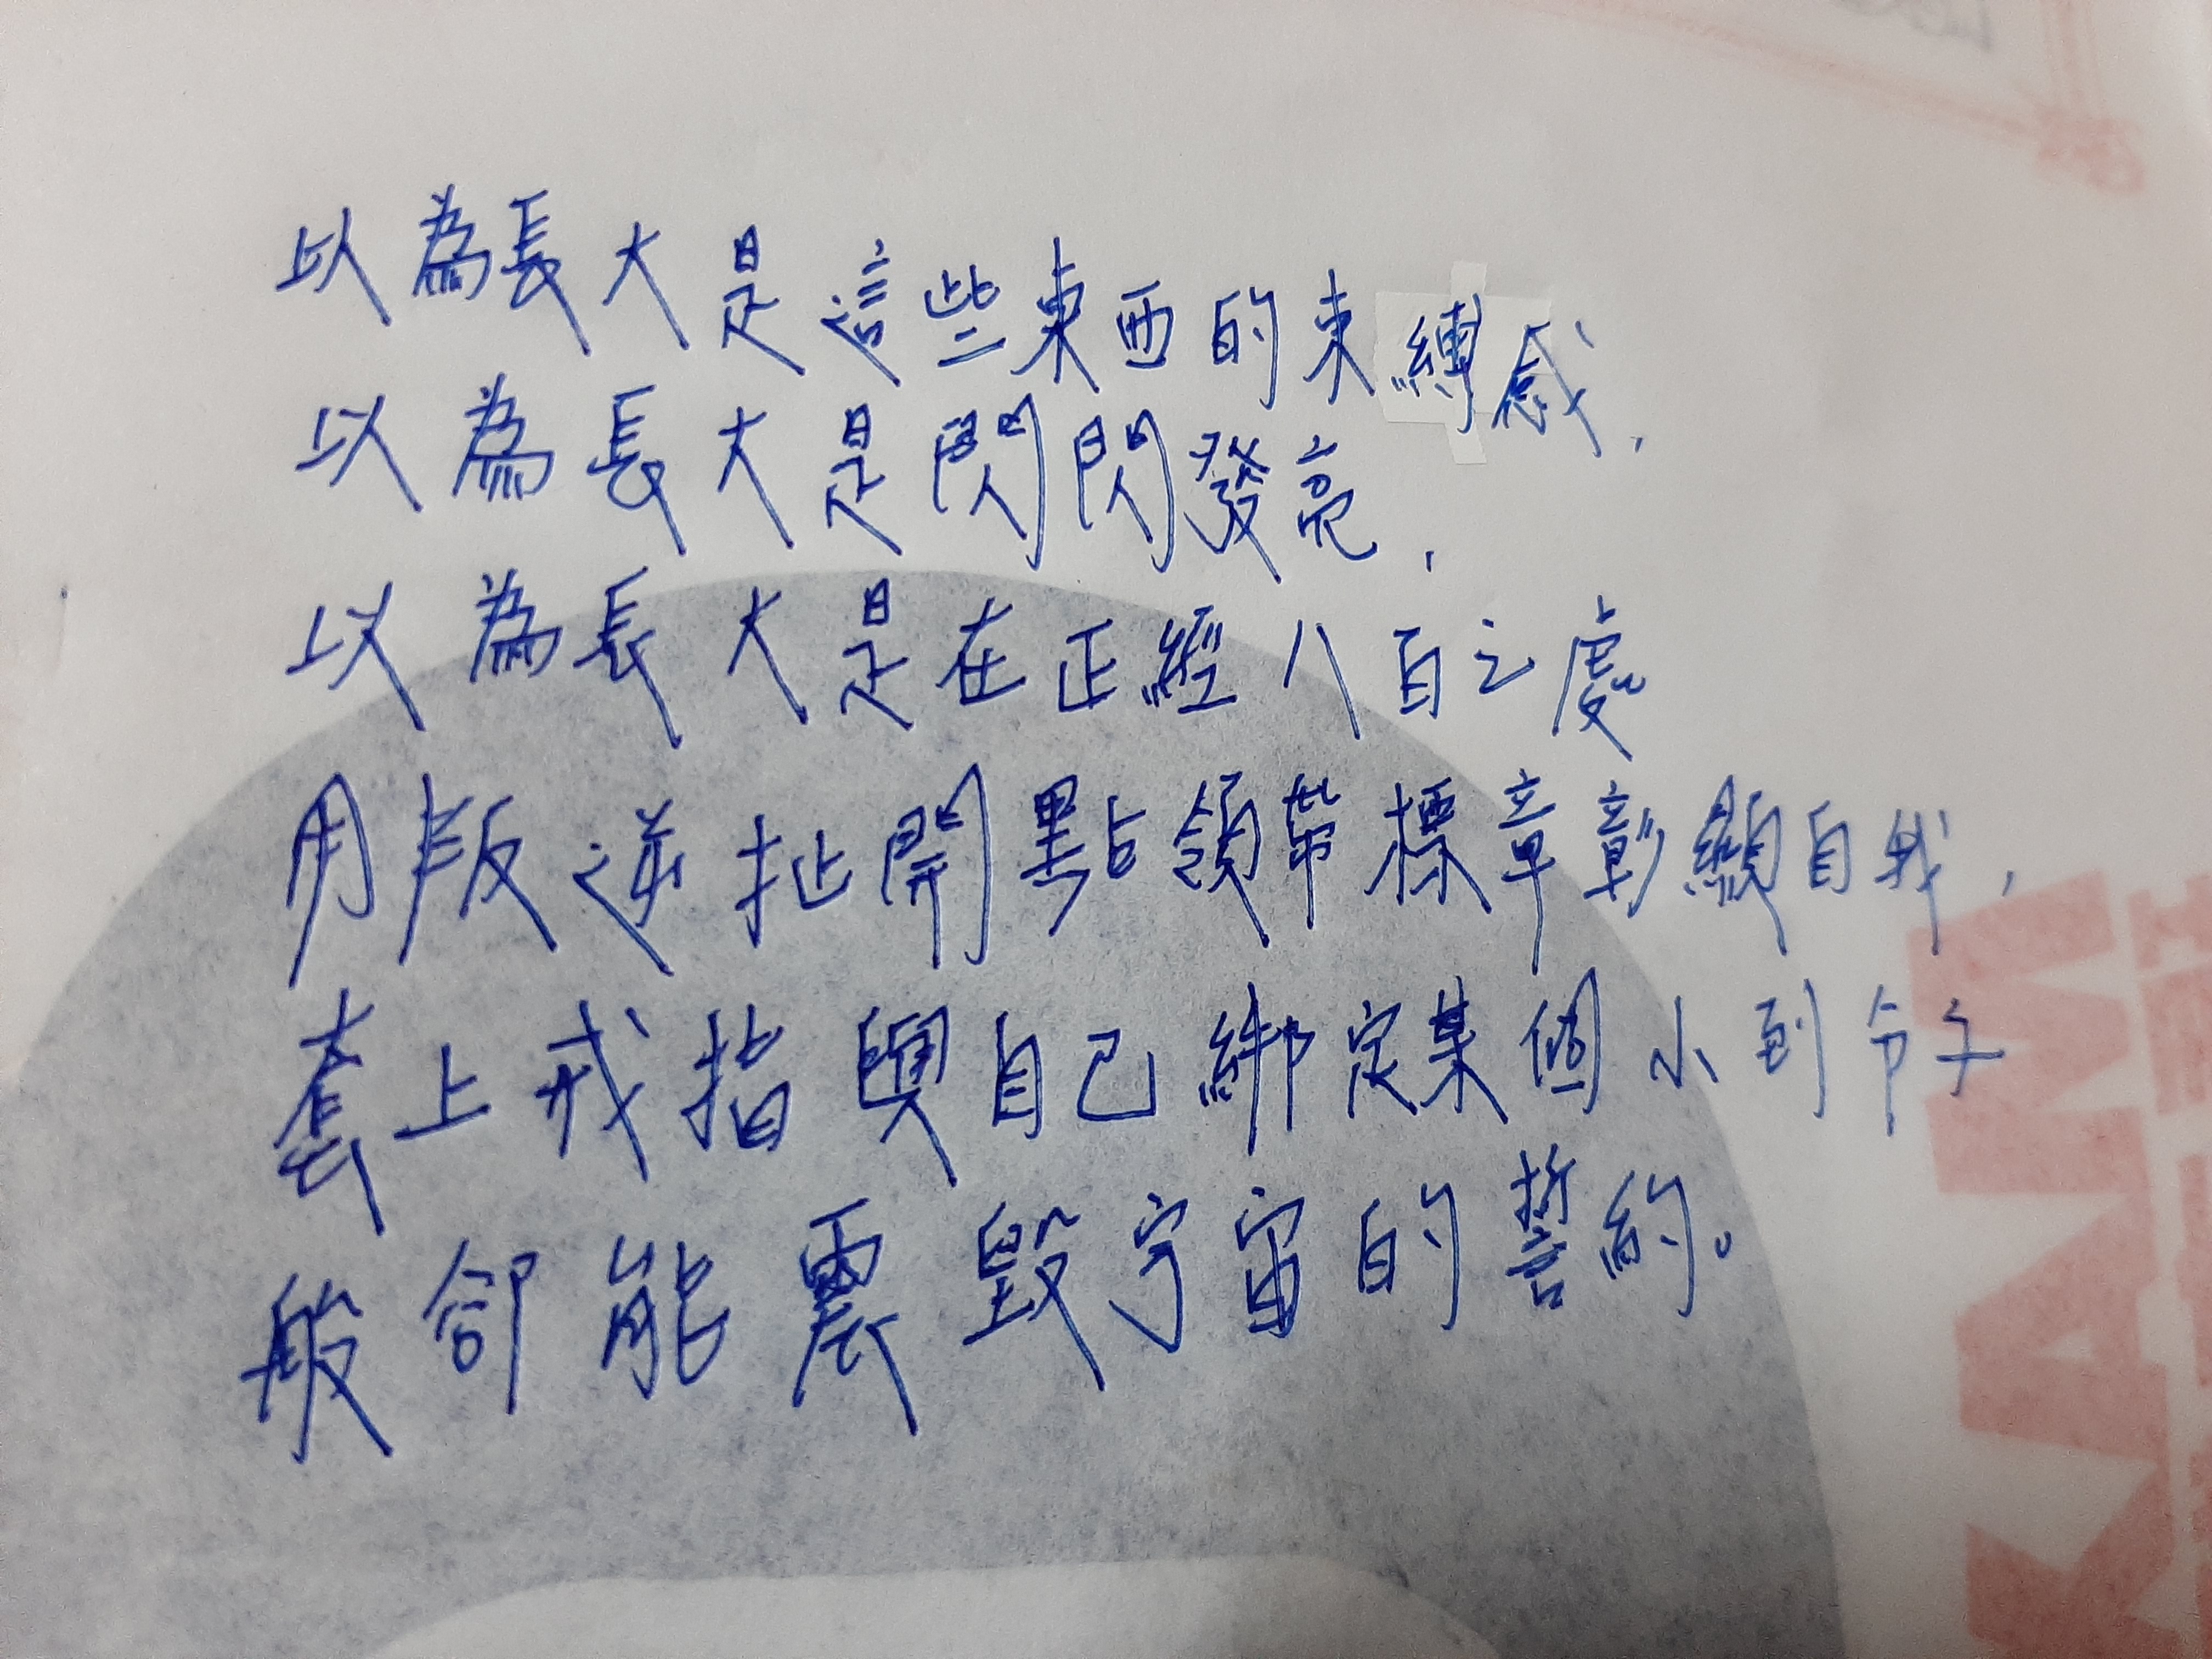 以為長大是這些東西的束縛感,
以為長大是閃閃發亮,
以為長大是在正經八百之處
用叛逆扯開點領帶標章彰顯自我,
套上戒指與自己綁定某個小到令子
般卻能震毀宇宙的誓約。